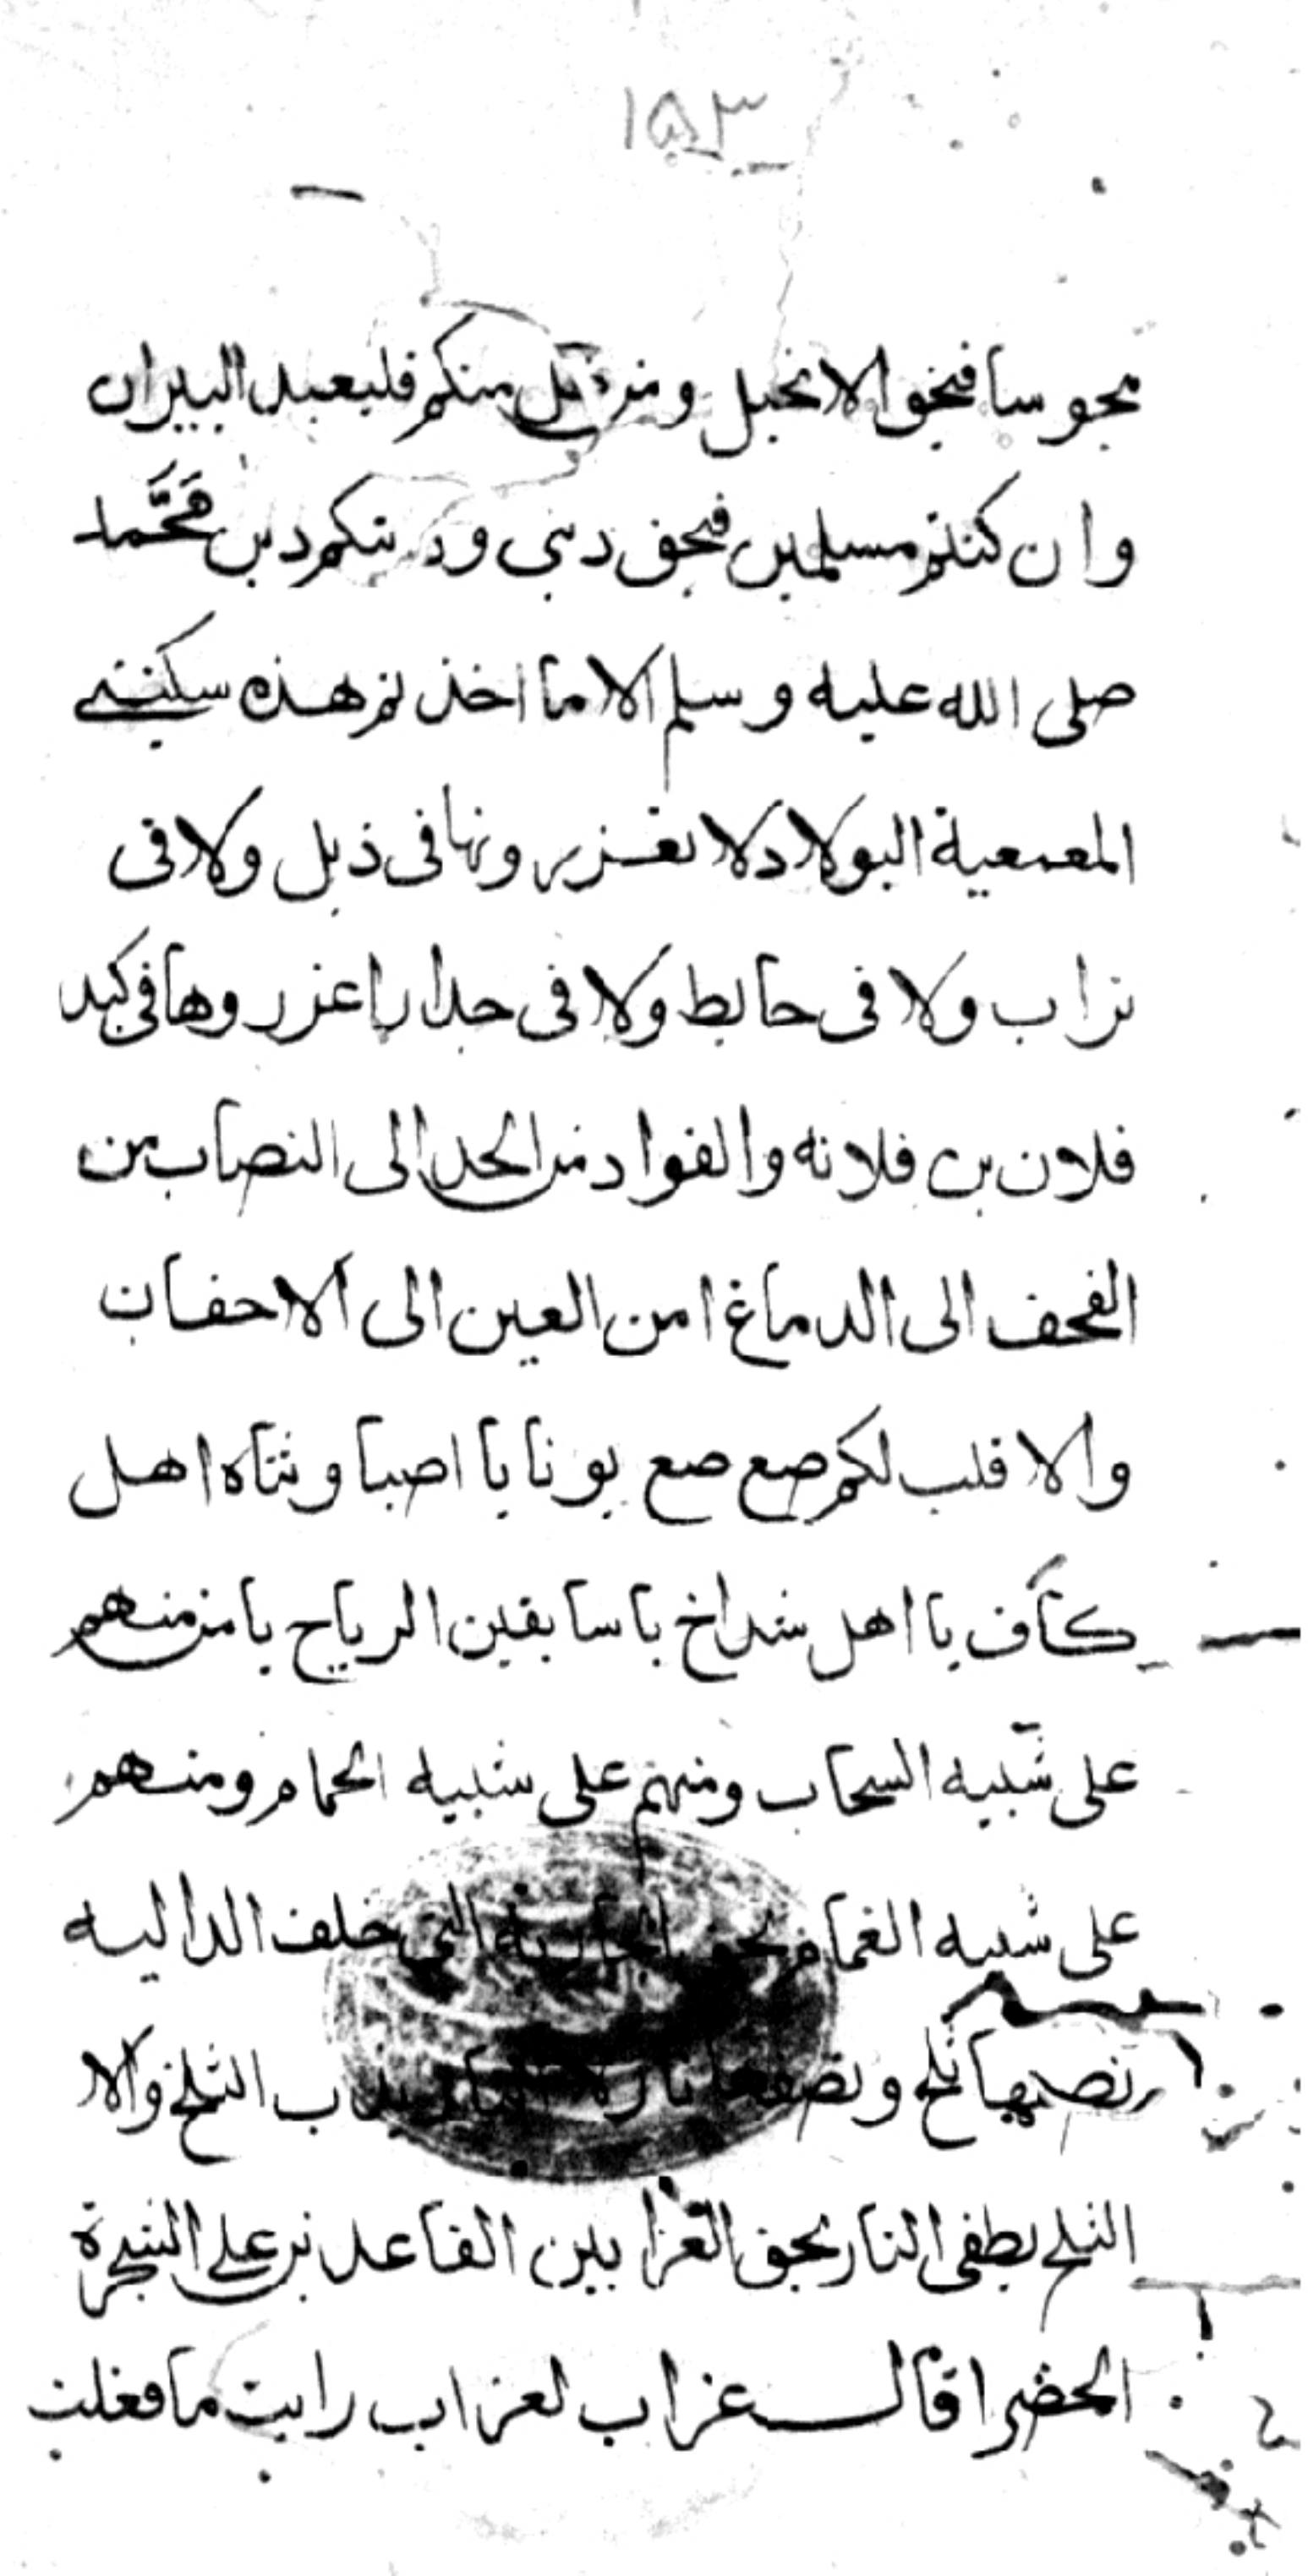 ١٥٣
مجوسا فبحق الانجيل ومن منكم فليعبد النيران
وان كنتم مسلمين فبحق ديني ودينكم دين محمد
صلى الله عليه وسلم الا ما اخذتم هذه سكينتي
المعمعية البولاد لا تغزرونها في ذبل ولا في
تراب ولا في حايط ولا في جدار اغزروها في كبد
فلان بن فلانه والفواد من الحد الى النصاب من
القحف الى الدماغ من العين الى الاجفان
والا قلب لكم صع صع يونايا اصباوتتاه اهل
كاف يا اهل شداخ يا سابقين الرياح يا من منهم
على شبيه السحاب ومنهم على شبيه الحمام ومنهم
على شبيه الغمام بحق التي خلف الداليه
نصيها ثلج ونصفها نار الثلج والا
الثلج يطفي النار بحق الغراب بين القاعدين على الشجرة
الخضرا قال غراب لغراب رايت ما فعلت